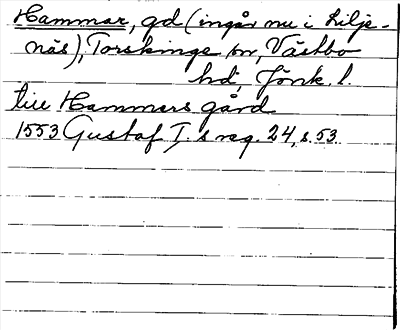 Hammar, gd (ingår nu i Lilje-
näs), Torskinge sn, Västbo
hd, Jönk. l.
till Hammars gård
1553 Gustaf I. s reg. 24, s. 53.